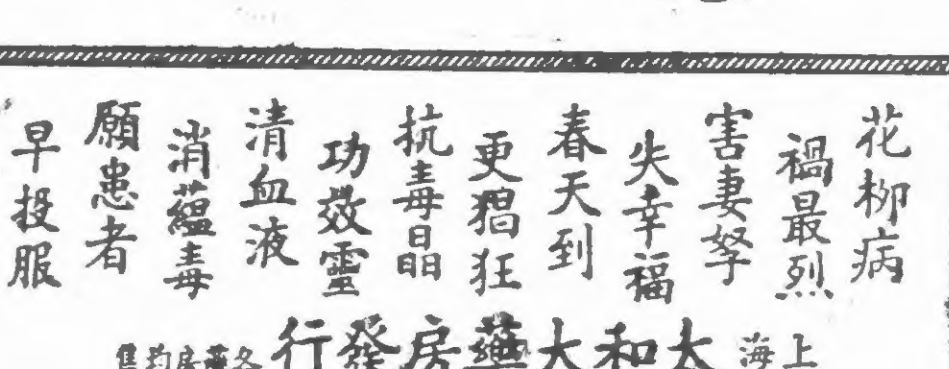 花柳病
禍最烈
害妻孥
失幸福
春天到
更猖狂
抗毒晶
功效靈
清血液
消蘊毒
願患者
早投服
上海
太和大藥房發行
各藥房均售